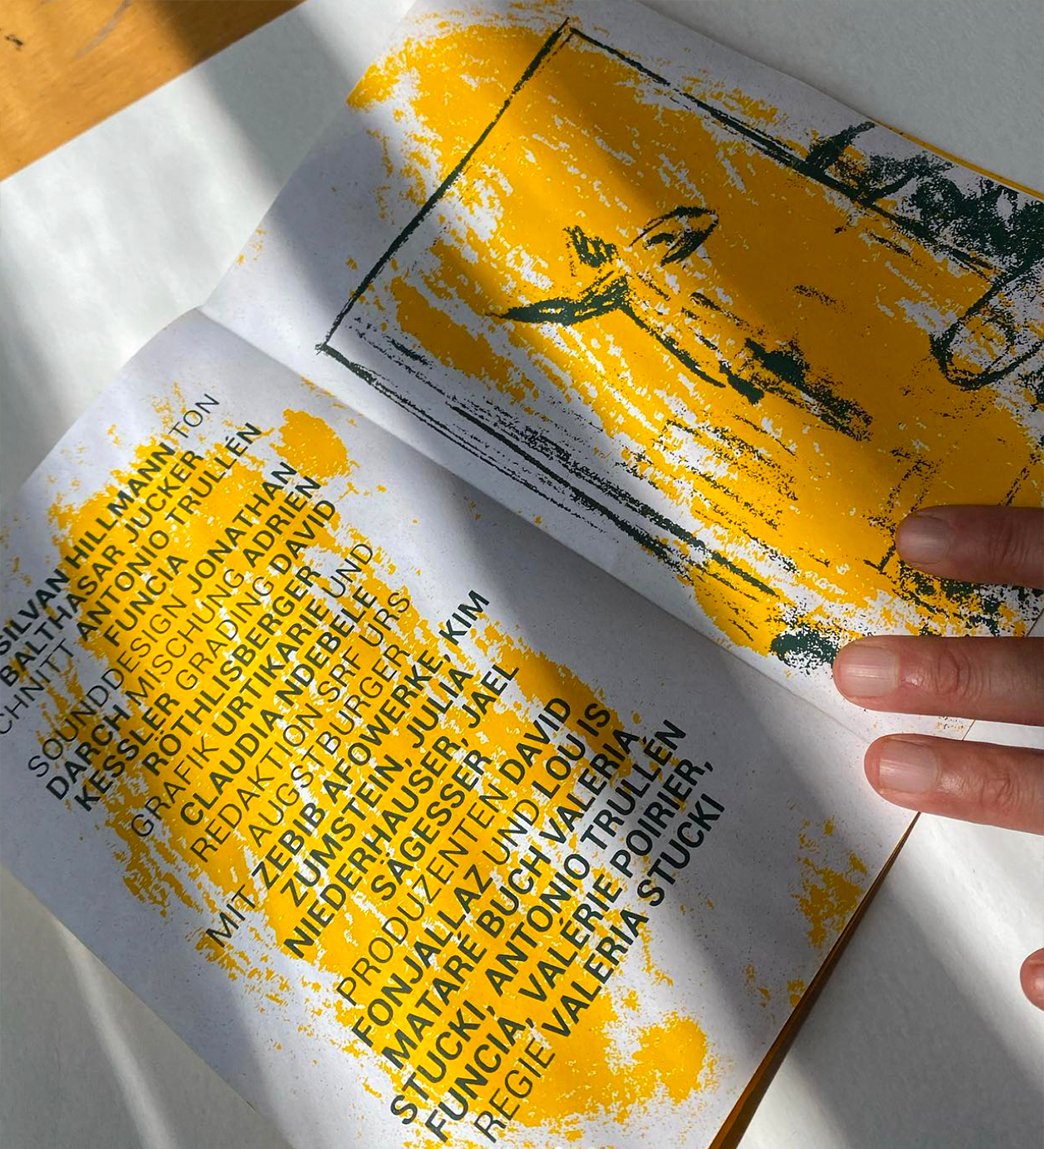 SILVAN HILLMANN TON
BALTHASAR JUCKER
CHNITT ANTONIO TRULLÉN
FUNCIA
SOUNDDESIGN JONATHAN
DARCH MISCHUNG ADRIEN
KESSLER GRADING DAVID
RÖTHLISBERGER
GRAFIK URTIKARIE UND
CLAUDIA NDEBELE
REDAKTION SRF URS
AUGSTBURGER
MIT ZEBIB AFOWERKE, KIM
ZUMSTEIN, JULIA
NIEDERHAUSER, JAEL
SÄGESSER
PRODUZENTEN DAVID
FONJALLAZ UND LOUIS
MATARÉ BUCH VALERIA
STUCKI, ANTONIO TRULLÉN
FUNCIA, VALÉRIE POIRIER,
REGIE VALERIA STUCKI